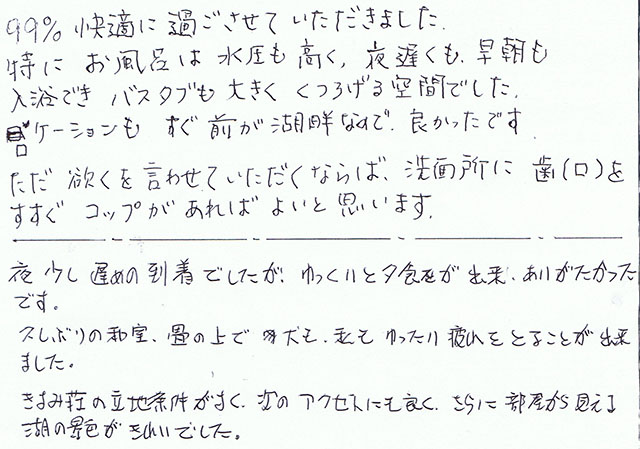 99% 快適に過ごさせていただきました.
特にお風呂は水圧も高く、夜遅くも、早朝も
入浴でき バスタブも大きく くつろげる空間でした.
ロケーションも すぐ前が湖畔なので、良かったです.
ただ 欲くを言わせていただくならば、洗面所に 歯(口)を
すすぐ コップが あれば よいと思います.
夜 少し 遅めの到着でしたが、ゆっくりと夕食をが 出来、ありがたかった
です。
久しぶりの和室、畳の上で 犬も、私も ゆったり 疲れを とることが出来
ました。
きよみ荘の立地条件がよく、次の アクセスにも良く、さらに 部屋から見える
湖の景色が きれいでした。